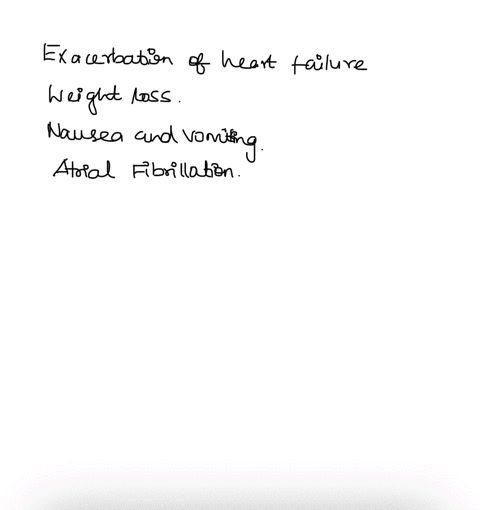 Exacerbation of heart failure
Weight loss.
Nausea and vomiting.
Atrial Fibrillation.